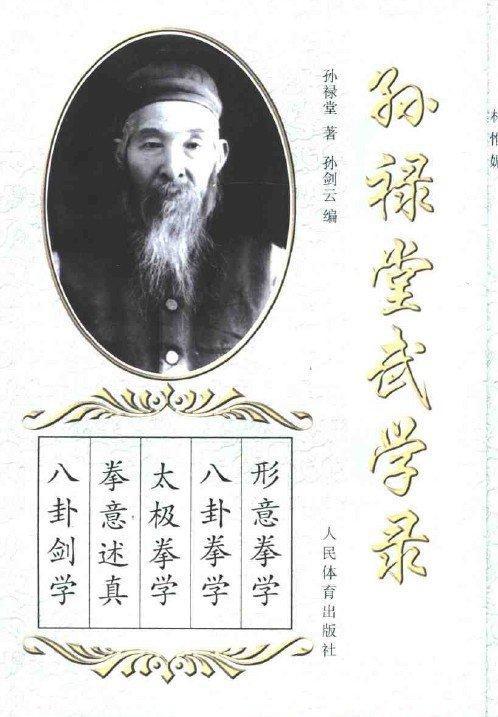 孙禄堂武学录
孙禄堂 著 孙剑云 编
人民体育出版社
形意拳学
八卦拳学
太极拳学
拳意述真
八卦剑学